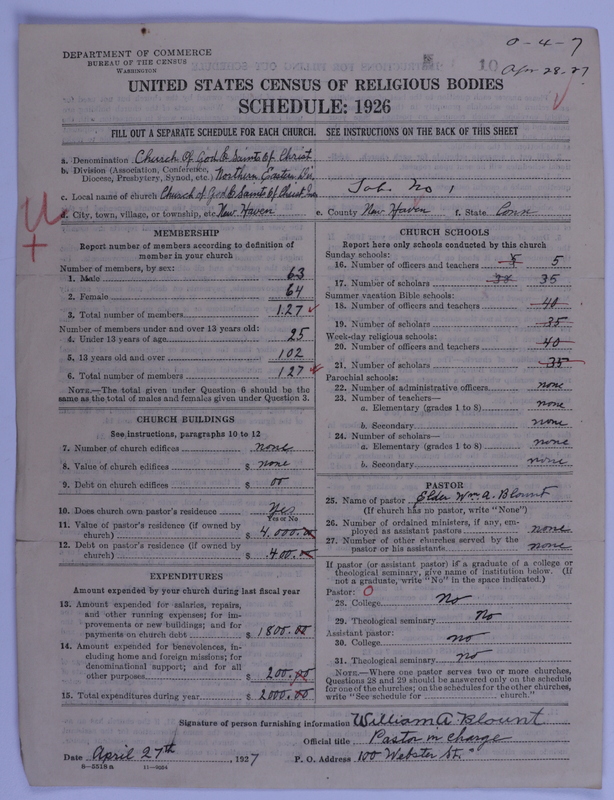 0-4-7
10
Apr 28.27
DEPARTMENT OF COMMERCE
BUREAU OF THE CENSUS
WASHINGTON
UNITED STATES CENSUS OF RELIGIOUS BODIES
SCHEDULE: 1926
FILL OUT A SEPARATE SCHEDULE FOR EACH CHURCH. SEE INSTRUCTIONS ON THE BACK OF THIS SHEET
a. Denomination Church Of God & Saints Of Christ
b. Division (Association, Conference, Diocese, Presbytery, Synod, etc.) Northern Eastern Dis.
c. Local name of church Church of God & Saints Of Christ Tab. No 1
d. City, town, village, or township, etc. New Haven e. County New Haven f. State Conn
MEMBERSHIP
Report number of members according to definition of
member in your church
Number of members, by sex:
1. Male 63
2. Female 64
3. Total number of members 127
Number of members under and over 13 years old:
4. Under 13 years of age 25
5. 13 years old and over 102
6. Total number of members 127
NOTE.—The total given under Question 6 should be
same as the total of males and females given under Question 3.
CHURCH BUILDINGS
See instructions, paragraphs 10 to 12
7. Number of church edifices none
8. Value of church edifices $ none
9. Debt on church edifices $ 00
10. Does church own pastor's residence Yes
Yes or No
11. Value of pastor's residence (if owned by
church) $ 4,000.00
12. Debt on pastor's residence (if owned by
church) $ 400.00
EXPENDITURES
Amount expended by your church during last fiscal year
13. Amount expended for salaries, repairs,
and other running expenses; for im-
provements or new buildings; and for
payments on church debt $ 1800.00
14. Amount expended for benevolences, in-
cluding home and foreign missions; for
denominational support; and for all
other purposes $ 200.00
15. Total expenditures during year $ 2000.00
CHURCH SCHOOLS
Report here only schools conducted by this church
Sunday schools:
16. Number of officers and teachers 5 5
17. Number of scholars 35
Summer vacation Bible schools:
18. Number of officers and teachers 40
19. Number of scholars 35
Week-day religious schools:
20. Number of officers and teachers 40
21. Number of scholars 35
Parochial schools:
22. Number of administrative officers none
23. Number of teachers—
a. Elementary (grades 1 to 8) none
b. Secondary none
24. Number of scholars—
a. Elementary (grades 1 to 8) none
b. Secondary none
PASTOR
25. Name of pastor Elder Wm A. Blount
(If church has no pastor, write "None")
26. Number of ordained ministers, if any, em-
ployed as assistant pastors none
27. Number of other churches served by the
pastor or his assistants none
If pastor (or assistant pastor) is a graduate of a college or
theological seminary, give name of institution below. (If
not a graduate, write "No" in the space indicated.)
Pastor: 0
28. College No
29. Theological seminary No
Assistant pastor:
30. College no
31. Theological seminary no
NOTE.—Where one pastor serves two or more churches,
Questions 28 and 29 should be answered only on the schedule
for one of the churches; on the schedules for the other churches,
write "See schedule for church."
Signature of person furnishing information William A. Blount
Official title Pastor in charge
Date April 27th, 1927 P. O. Address 100 Webster St.
8-5518a 11-9024